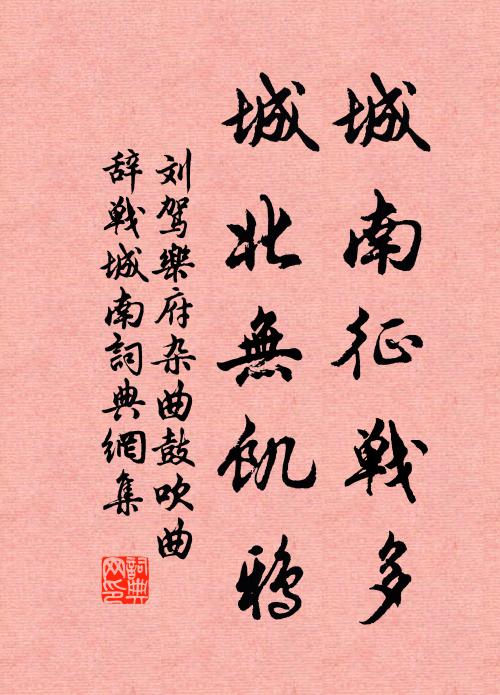 城南征戰多
城北無飢鴉
刘駕樂府杂曲鼓吹曲
辞戰城南詞典網集
詞典
网印